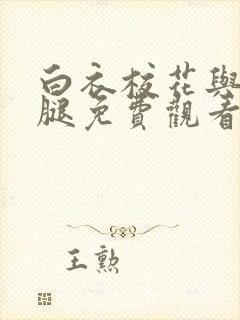 白衣校花與
腿免費觀看
王勲